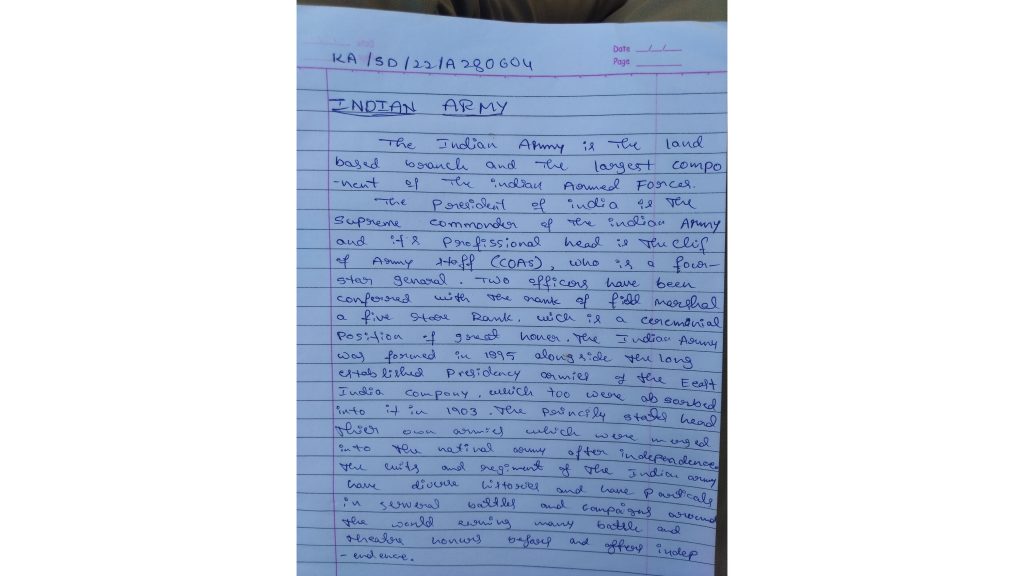 Date
Page
KA/SD/22/A280604
INDIAN ARMY
The Indian Army is the land
based branch and the largest compo
-nent of The indian Armed Forces.
The President of india is the
Supreme commonder of the indian Army
and it's Profissional head is the Clif
of Army staff (COAS), who is a four-
star general. Two officers have been
conferred with the rank of fild marshal
a five stare Rank. wich is a ceremonial
Position of great honer. The Indian Army
was formed in 1895 alongside the long
established Presidency armies of the Eeast
India company, which too were absorbed
into it in 1903. The princily stats head
Thier own armies which were merged
into the natinal army after independence
The units and regiment of the Indian army
have diverse histories and have particals
in serweral battles and campaigns around
the world earning many battle and
theatre honurs before and after indep
-endence.